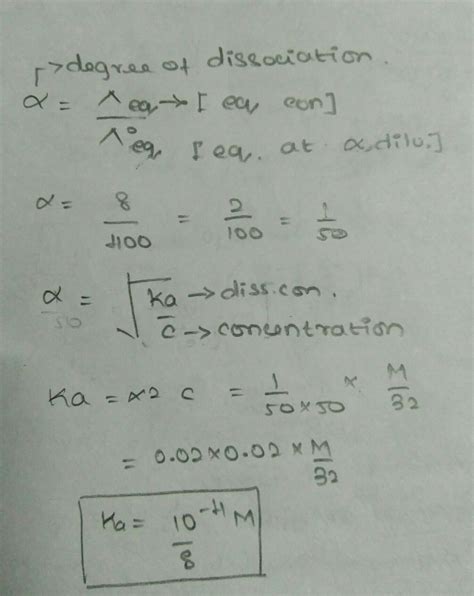 ↱>degree of dissociation.
α = Λeq → [eq con]
Λ°eq [eq. at α dilu.]
α = 8/400 = 2/100 = 1/50
α = √Ka/c → diss.con.
50 → concentration
Ka = α2 c = 1/50×50 × M/32
= 0.02×0.02×M/32
Ka = 10^-4 M/8